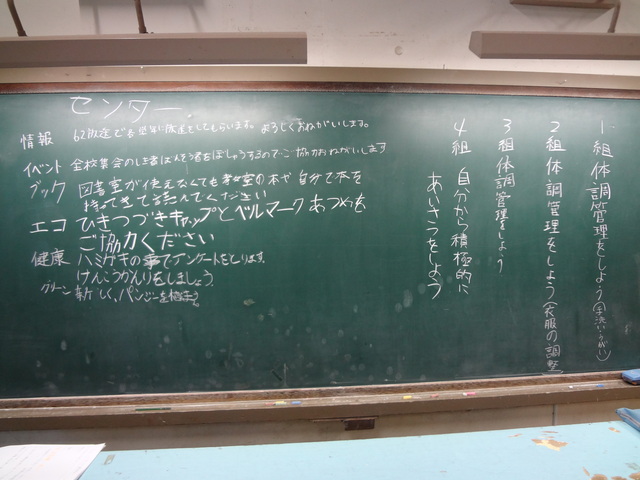 センター
情報 6年に放送をしてもらいます。よろしくおねがいします。
イベント 全校集会のし者はんそう者をぼしゅうするのでご協力おねがいします
ブック 図書室が使えなくても教室の本や自分で本を
持ってきて読んでください
エコ ひきつづきキャップとベルマークあつめを
ご協力ください
健康 ハミガキの事でアンケートをとります。
けんこうかんりをしましょう。
グリーン 新しく、パンジーを植えよう
1組 体調管理をしよう(手洗い・うがい)
2組 体調管理をしよう(衣服の調整)
3組 体調管理をしよう
4組 自分から積極的に
あいさつをしよう